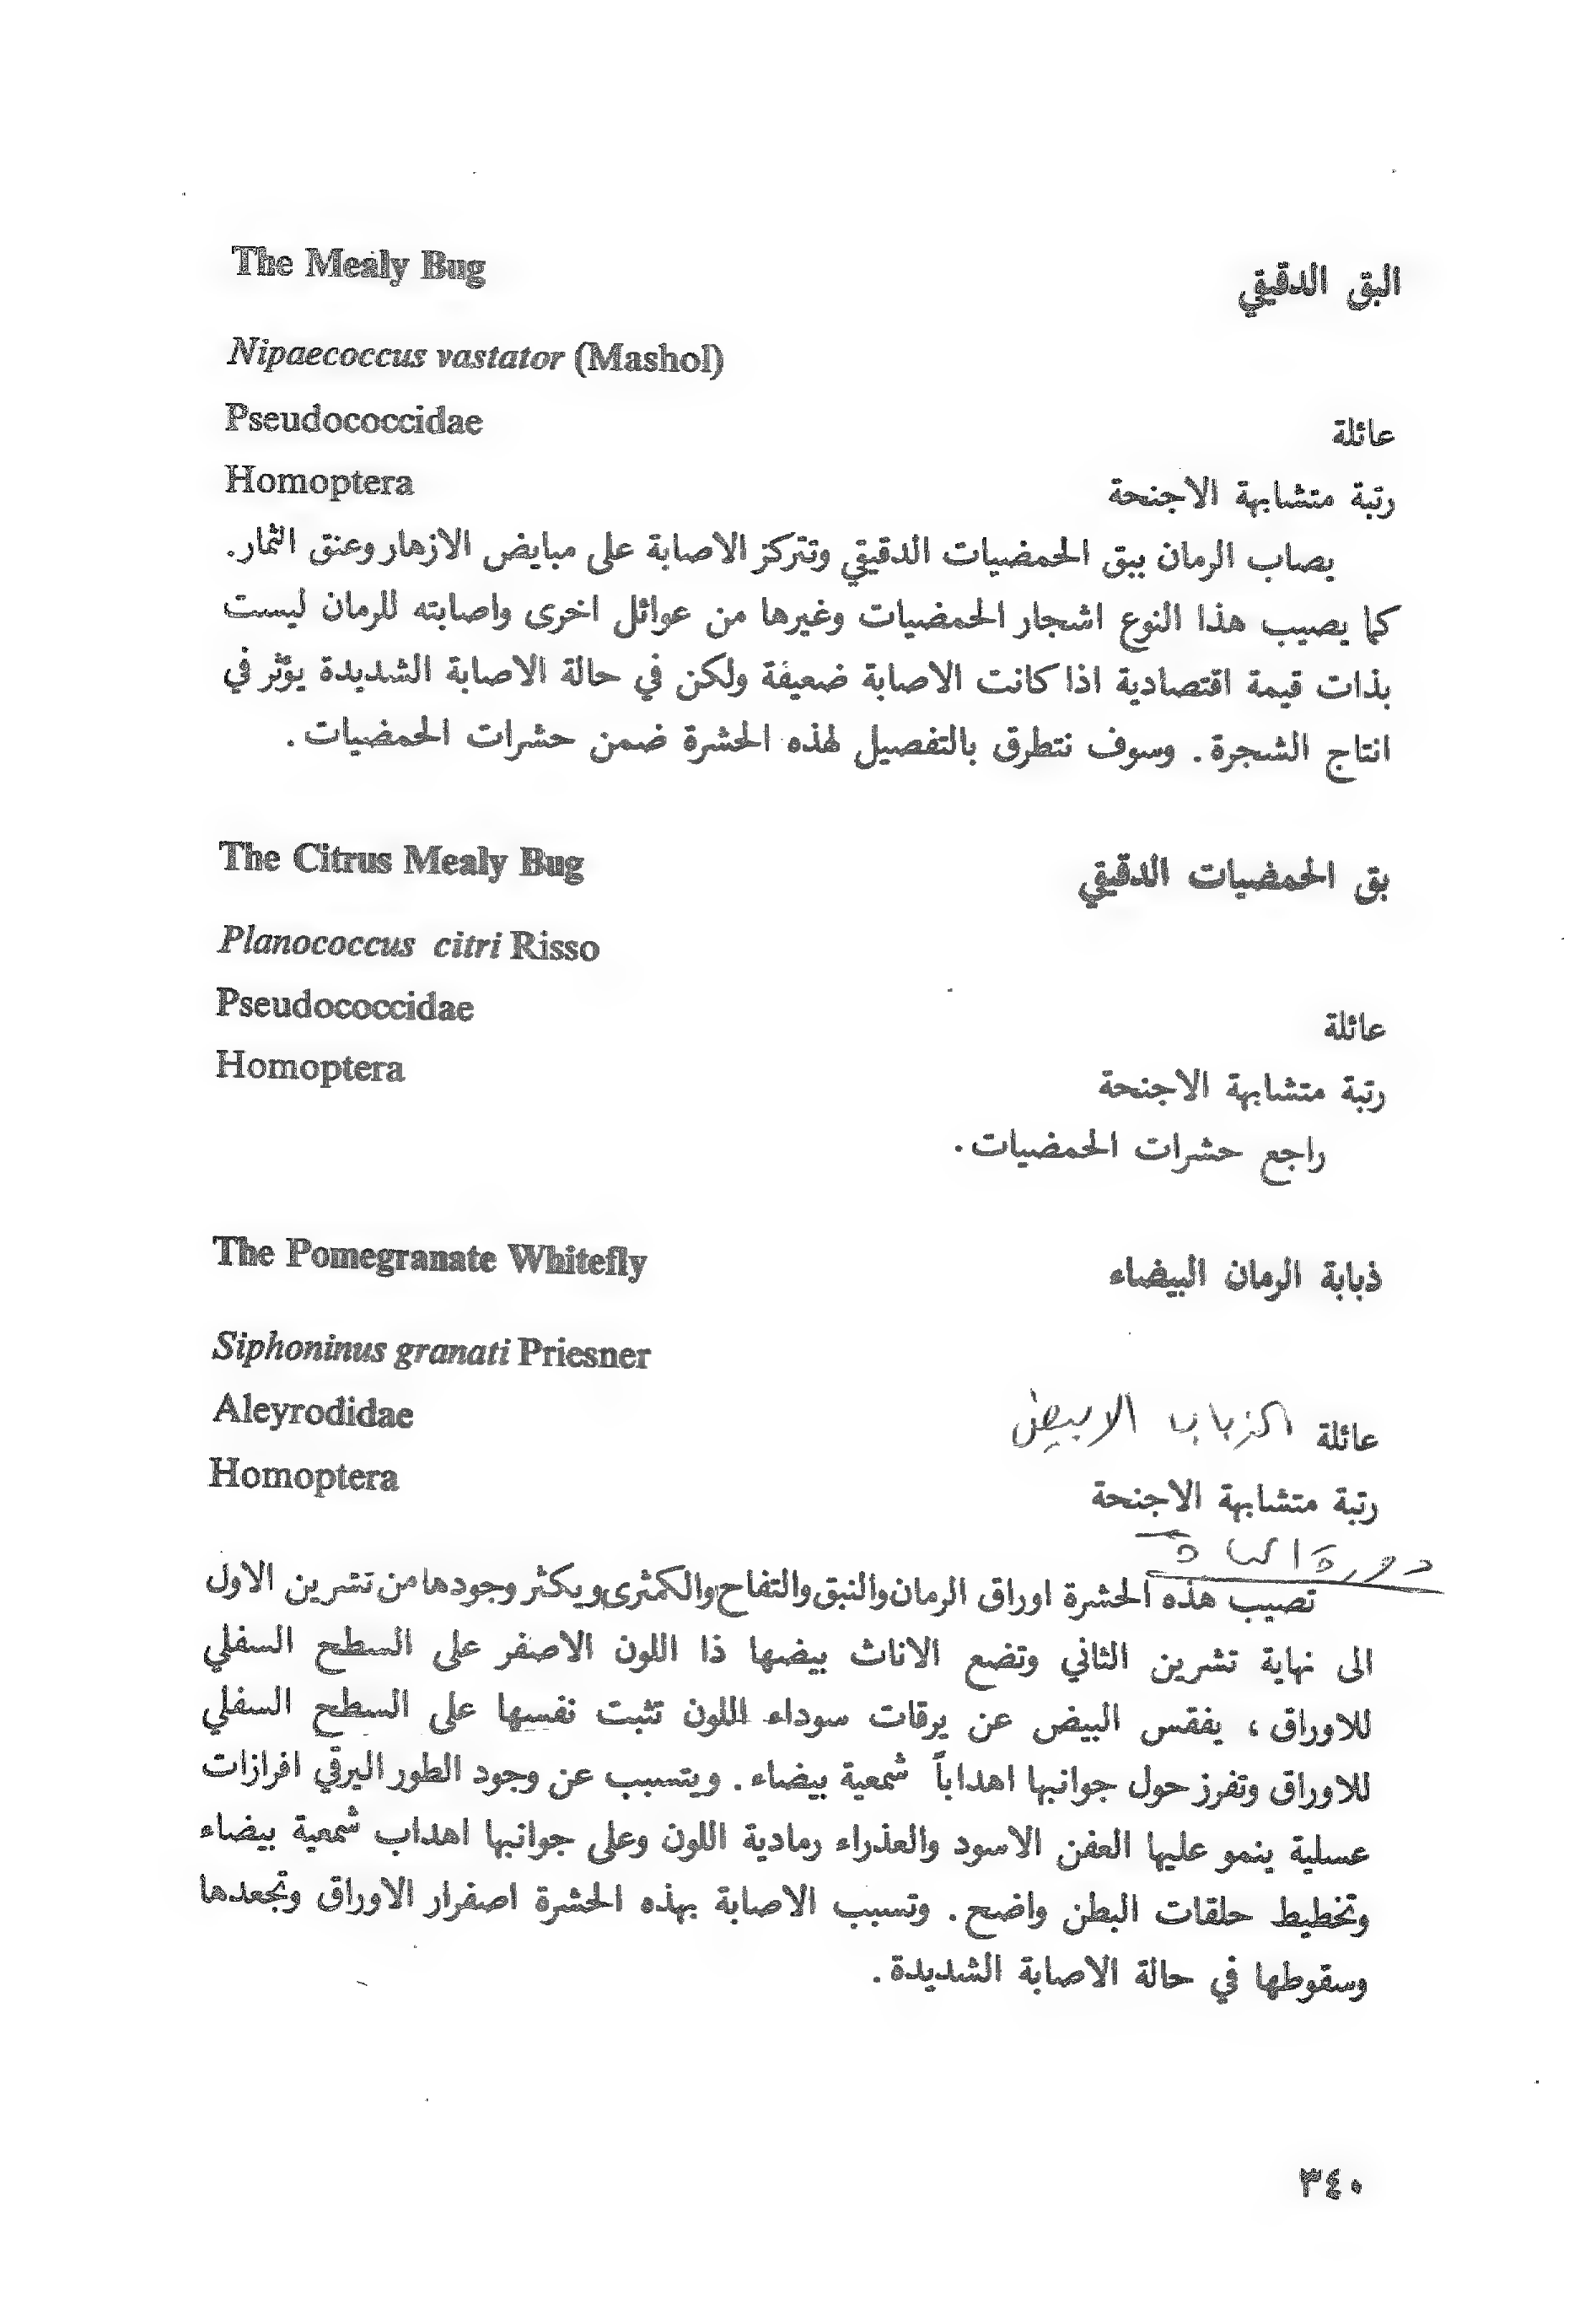 البق الدقيقي The Mealy Bug
Nipaecoccus vastator (Mashol)
عائلة Pseudococcidae
رتبة متشابهة الاجنحة Homoptera
يصاب الرمان ببق الحمضيات الدقيقي وتتركز الاصابة على مبايض الازهار وعنق الثمار.
كما يصيب هذا النوع اشجار الحمضيات وغيرها من عوائل اخرى واصابته للرمان ليست
بذات قيمة اقتصادية اذا كانت الاصابة ضعيفة ولكن في حالة الاصابة الشديدة يؤثر في
انتاج الشجرة. وسوف نتطرق بالتفصيل لهذه الحشرة ضمن حشرات الحمضيات.
بق الحمضيات الدقيقي The Citrus Mealy Bug
Planococcus citri Risso
عائلة Pseudococcidae
رتبة متشابهة الاجنحة Homoptera
راجع حشرات الحمضيات.
ذبابة الرمان البيضاء The Pomegranate Whitefly
Siphoninus granati Priesner
عائلة الذباب الابيض Aleyrodidae
رتبة متشابهة الاجنحة Homoptera
دورة الحياة
تصيب هذه الحشرة اوراق الرمان والنبق والتفاح والكمثرى ويكثر وجودها من تشرين الاول
الى نهاية تشرين الثاني وتضع الاناث بيضها ذا اللون الاصفر على السطح السفلي
للاوراق ، يفقس البيض عن يرقات سوداء اللون تثبت نفسها على السطح السفلي
للاوراق وتفرز حول جوانبها اهداباً شمعية بيضاء. ويتسبب عن وجود الطور اليرقي افرازات
عسلية ينمو عليها العفن الاسود والعذراء رمادية اللون وعلى جوانبها اهداب شمعية بيضاء
وتخطيط حلقات البطن واضح. وتسبب الاصابة بهذه الحشرة اصفرار الاوراق وتجعدها
وسقوطها في حالة الاصابة الشديدة.
٣٤٠